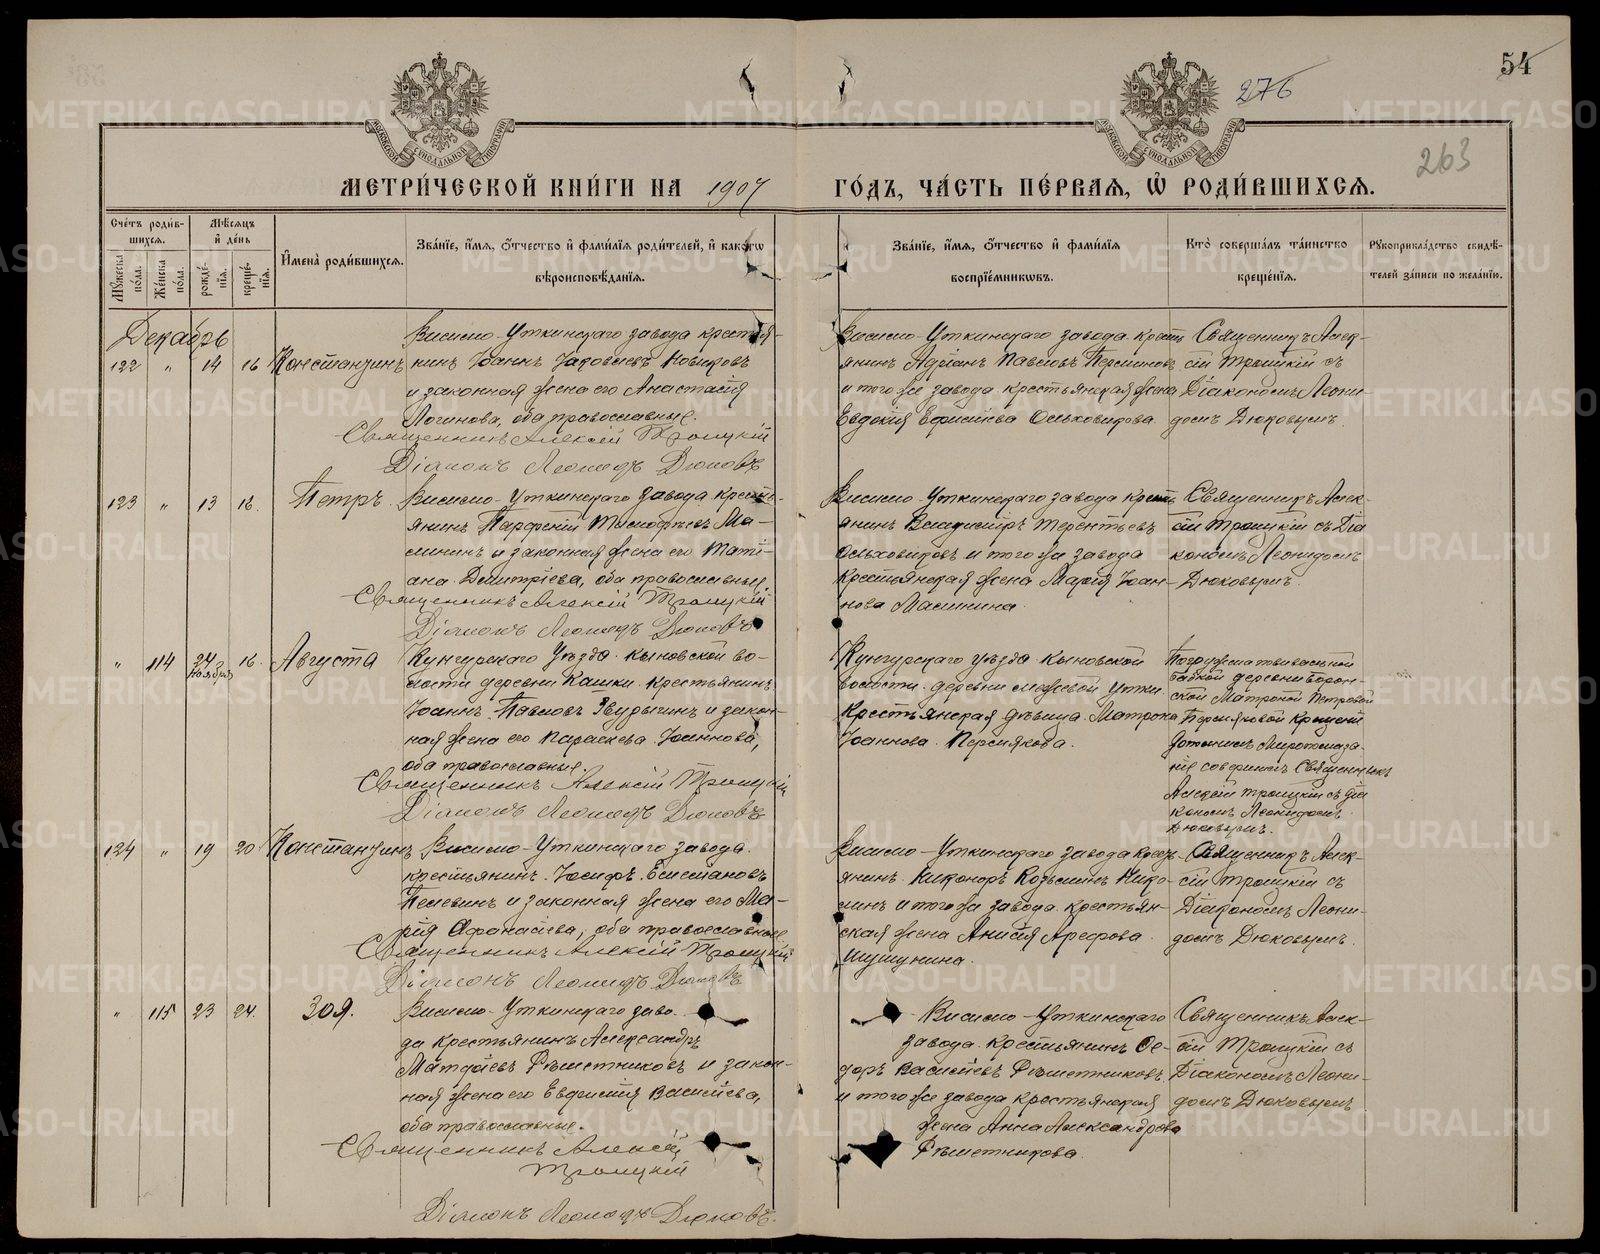 54
276
263
МЕТРИ́ЧЕСКОЙ КНИ́ГИ НА 1907 ГО́ДЪ, ЧА́СТЬ ПЕ́РВАЯ, Ѡ҆ РОДИ́ВШИХСЯ.
Сче́тъ роди́вшихся.
Му́жеска по́ла.
Же́нска по́ла.
Мѣ́сяцъ и҆ де́нь
рожде́нїя.
креще́нїя.
И҆мена̀ роди́вшихся.
Зва́нїе, и҆́мя, ѻ҆́тчество и҆ фами́лїя роди́телей, и҆ како́гѡ
вѣроисповѣ́данїя.
Зва́нїе, и҆́мя, ѻ҆́тчество и҆ фами́лїя
воспрїе́мникѡвъ.
Кто̀ соверша́лъ та́инство
креще́нїя.
Рꙋкоприкла́дство свидѣ́телей за́писи по жела́нїю.
Декабрь
122 " 14 16 Константинъ
Висимо-Уткинскаго завода крестья-
нинъ Іоаннъ Новиковъ
и законная жена его Анастасія
Логинова, оба православные.
Священникъ Алексій Троицкій
Діаконъ Леонидъ Дюковъ
Висимо-Уткинскаго завода крест
янинъ Адріанъ Павловъ
и того же завода крестьянская жена
Евдокія Ефимьева Ольховикова.
Священникъ Алек-
сій Троицкій съ
Діакономъ Леони-
домъ Дюковымъ.
123 " 13 16. Петръ.
Висимо-Уткинскаго завода кресть-
янинъ Парфеній Тимофѣевъ Ма-
сининъ и законная жена его Тати-
ана Димитріева, оба православные
Священникъ Алексій Троицкій
Діаконъ Леонидъ Дюковъ
Висимо-Уткинскаго завода крест
янинъ Владиміръ Терентьевъ
Ольховиковъ и того же завода
крестьянская жена Марія Іоан-
нова Масинина.
Священникъ Алек-
сій Троицкій съ Діа
кономъ Леонидомъ
Дюковымъ.
" 114 24 Ноября 16. Августа
Кунгурскаго Уѣзда Кыновской во-
лости деревни Кашки крестьянинъ
Іоаннъ Павловъ и закон-
ная жена его Параскева Іоаннова,
оба православные.
Священникъ Алексій Троицкій
Діаконъ Леонидъ Дюковъ
Кунгурскаго уѣзда Кыновской
волости деревни Межевой Утки
крестьянская дѣвица Матрона
Іоаннова Пермякова.
Погружена повивальной
бабкой деревни
Матроной Петровой
Пермяковой
Миропомаза-
ніе совершилъ Священникъ
Алексій Троицкій съ Діа
кономъ Леонидомъ
Дюковымъ.
124 " 19 20 Константинъ
Висимо-Уткинскаго завода
крестьянинъ Іосифъ
и законная жена его Ма-
рія Афанасіева, оба православные
Священникъ Алексій Троицкій
Діаконъ Леонидъ Дюковъ
Висимо-Уткинскаго завода крест-
янинъ Никаноръ Козьминъ
и того же завода крестьян-
ская жена Анисія Арефова
Шушунина.
Священникъ Алек-
сій Троицкій съ
Діакономъ Леони-
домъ Дюковымъ.
" 115 23 24. Зоя.
Висимо-Уткинскаго заво-
да крестьянинъ Александръ
Матѳіевъ Рѣшетниковъ и закон-
ная жена его Евфимія Василіева,
оба православные.
Священникъ Алексій
Троицкій
Діаконъ Леонидъ Дюковъ.
Висимо-Уткинскаго
завода крестьянинъ Ѳе-
доръ Василіевъ Рѣшетниковъ
и того же завода крестьянская
жена Анна Александрова
Рѣшетникова.
Священникъ Алек-
сій Троицкій съ
Діакономъ Леони-
домъ Дюковымъ
METRIKI.GASO-URAL.RU